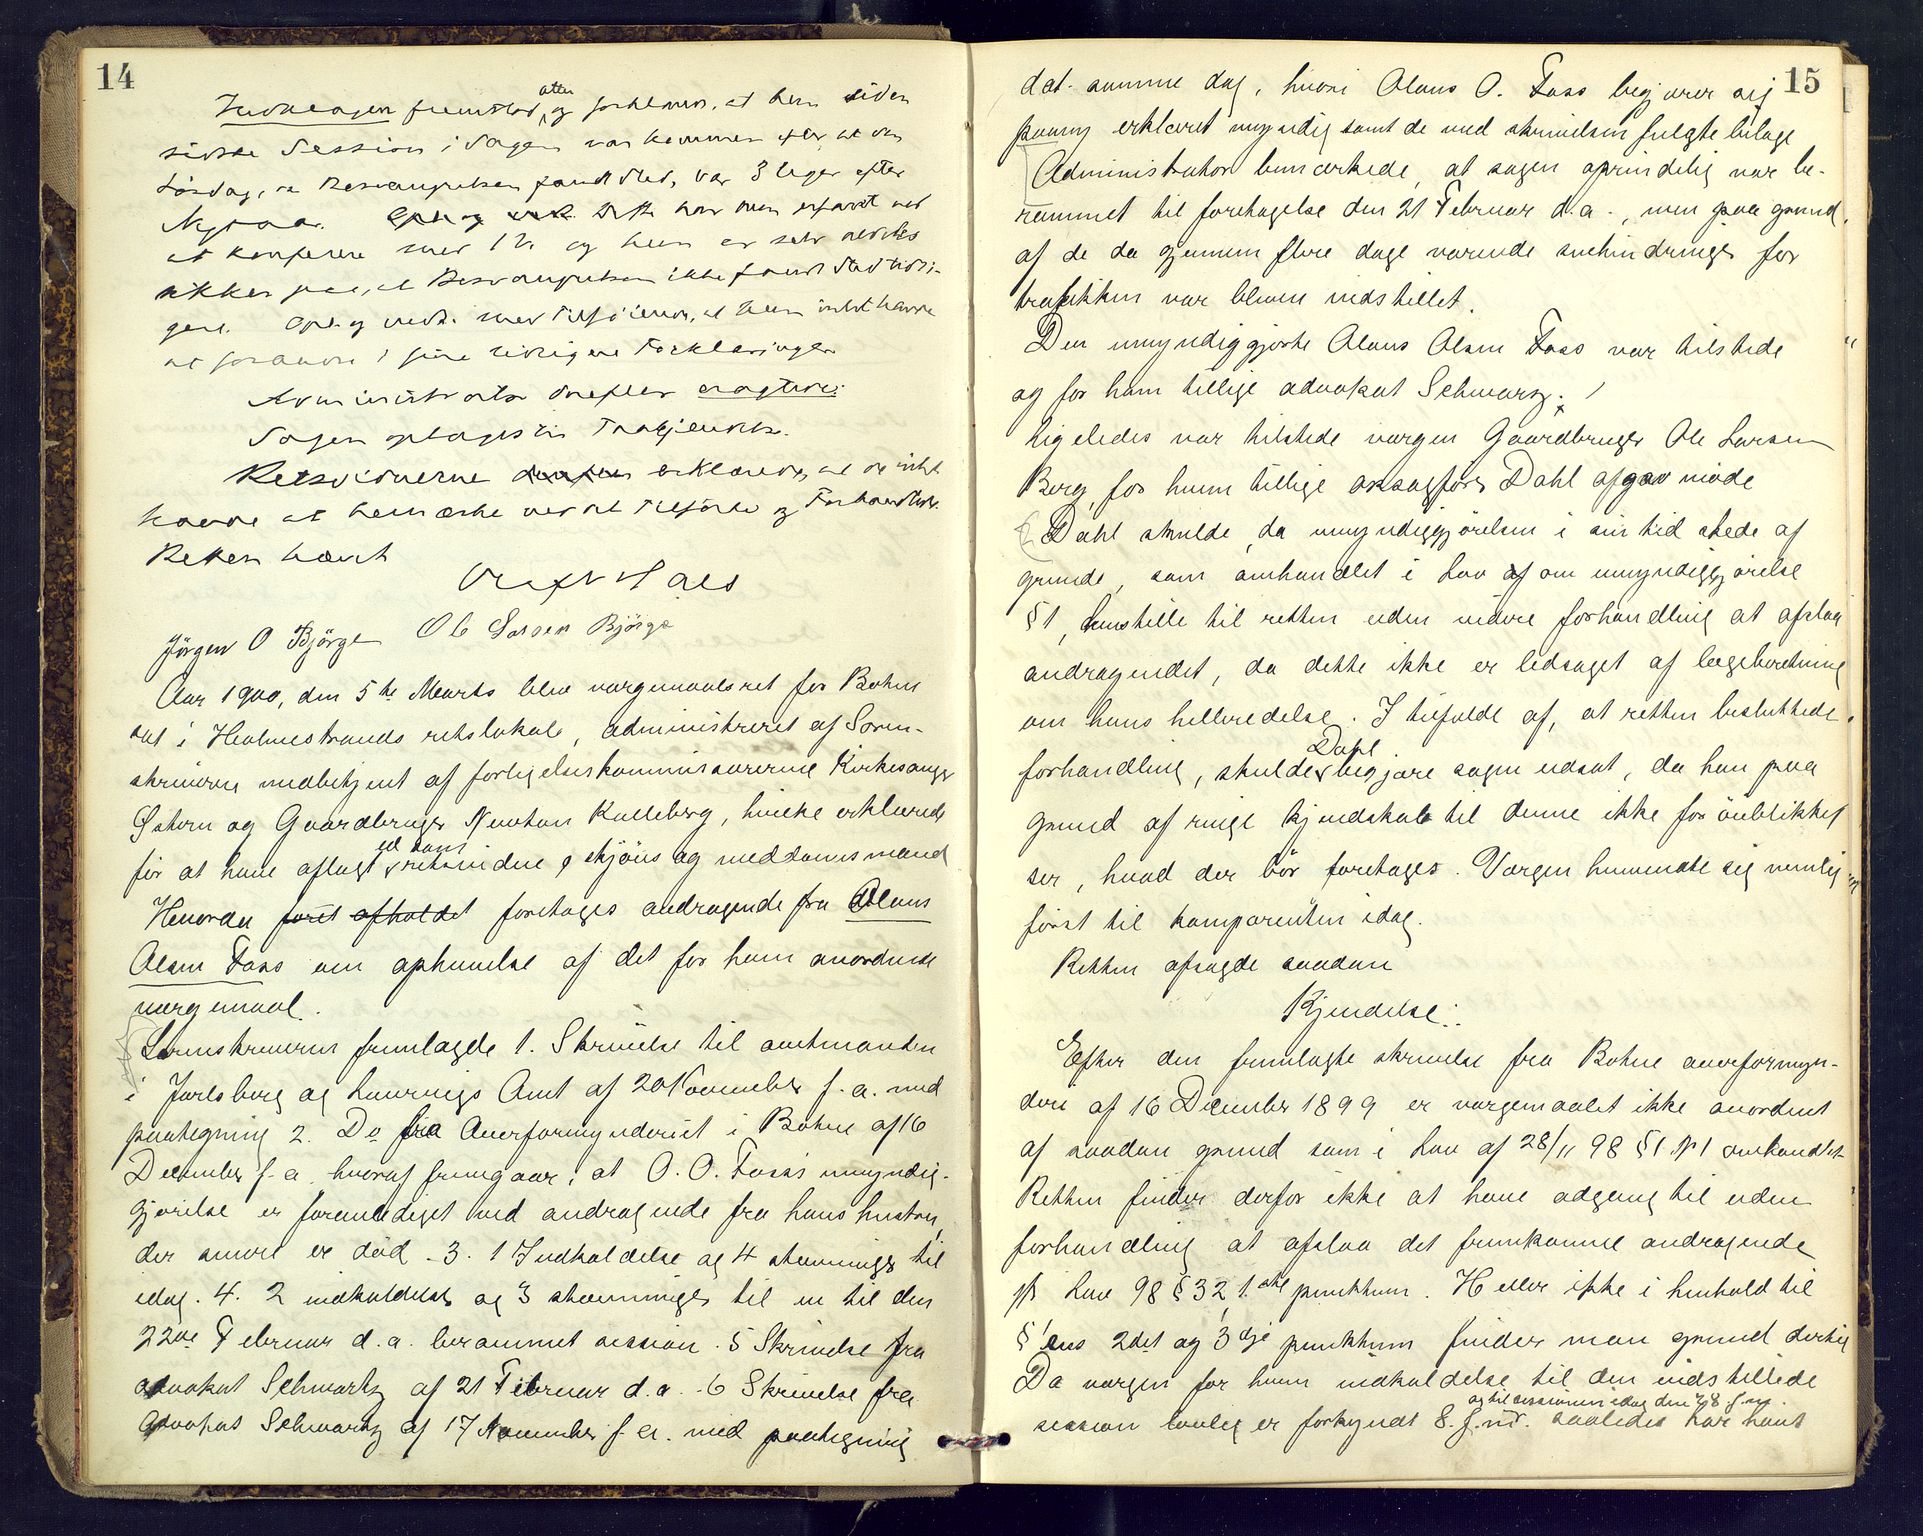 14
Indklagede fremstod atter og forklarede, at hun siden
sidste Session i Sagen var kommen efter, at den
Lösdag, da Besvangrelsen fandt Sted, var 3 Uger efter
Nytaar. Dette har hun erfaret ved
at konferere med og hun er selv aldeles
sikker paa, at Besvangrelsen ikke fandt Sted tidli-
gere. Opl. og vedt. med Tilföiende, at hun intet havde
at forandre i sine tidligere Forklaringer
Administrator derefter eragtede:
Sagen optages til Paakjendelse.
Retsvidnerne erklærede, at de intet
havde at bemærke ved det Tilförte og Forhandlede.
Retten hævet
Jörgen O Björge Ole Larsen Björge
Aar 1900, den 5te Marts blev vergemaalsret for Botne
sat i Holmestrands retslokale, administreret af Soren-
skriveren medbetjent af forligelseskommissærerne Kirkesanger
og Gaardbruger Kulleberg, hvilke erklærede
för at have aflagt ed som retsvidne, skjöns og meddomsmænd
Hvorda foret afholdet foretages andragende fra Olaus
Olsen Foss om ophævelse af det for ham anordnede
vergemaal.
Sorenskriveren fremlagde 1. Skrivelse til amtmanden
i Jarlsberg og Laurvigs Amt af 20 November f.a. med
paategning 2. Do fra Overformynderiet i Botne af 16
December f.a. hvoraf fremgaar, at O. O. Foss's umyndig-
gjörelse er foranlediget ved andragende fra hans hustru,
der senere er död. 3. 1 Indkaldelse og 4 stevninger til
idag. 4. 2 indkaldelser og 3 stævninger til en til den
22de Februar d.a. berammet session. 5 Skrivelse fra
advokat Schwartz af 21 Februar d.a. - 6 Skrivelse fra
Advokat Schwartz af 17 November f.a. med paategning
15
dat. samme dag, hvori Olaus O. Foss begjærer sig
paany erkleret myndig samt de med skrivelsen fulgte bilage
Administrator bemærkede, at sagen oprindelig var be-
rammet til foretagelse den 21 Februar d.a., men paa grund
af de da gjennem flere dage varende snehindringer for
trafikken var bleven indstillet.
Den umyndiggjorte Olaus Olsen Foss var tilstede
og for ham tillige advokat Schwartz.
Ligeledes var tilstede vergen Gaardbruger Ole Larsen
Berg, for hvem tillige ovsagförer Dahl afgav möde
Dahl skulde, da umyndiggjörelsen i sin tid skede af
grunde, som omhandlet i Lov af om umyndiggjörelse
§1, henstille til retten uden videre forhandling at afslaa
andragendet, da dette ikke er ledsaget af lægeberetning
om hans helbredelse. I tilfælde af, at retten besluttede
forhandling, skulde Dahl begjære sagen udsat, da han paa
grund af ringe kjendskab til denne ikke for öieblikket
ser, hvad der bör foretages. Vergen henvendte sig nemlig
först til komparenten idag.
Retten afsagde saadan
Kjendelse:
Efter den fremlagte skrivelse fra Botne overformyn-
deri af 16 December 1899 er vergemaalet ikke anordnet
af saadan grund som i Lov af 28/11 98 §1 N 1 omhandlet
Retten finder derfor ikke at have adgang til uden
forhandling at afslaa det fremkomne andragende
jfr Lov 98 §32, 1ste punktum. Heller ikke i henhold til
§'ens 2det og 3dje punktum finder man grund dertil
Da vergen for hvem indkaldelse til den indstillede
session lovlig er forkyndt 8. f.m. og til sessionen idag den 28 f.m. saaledes har havt